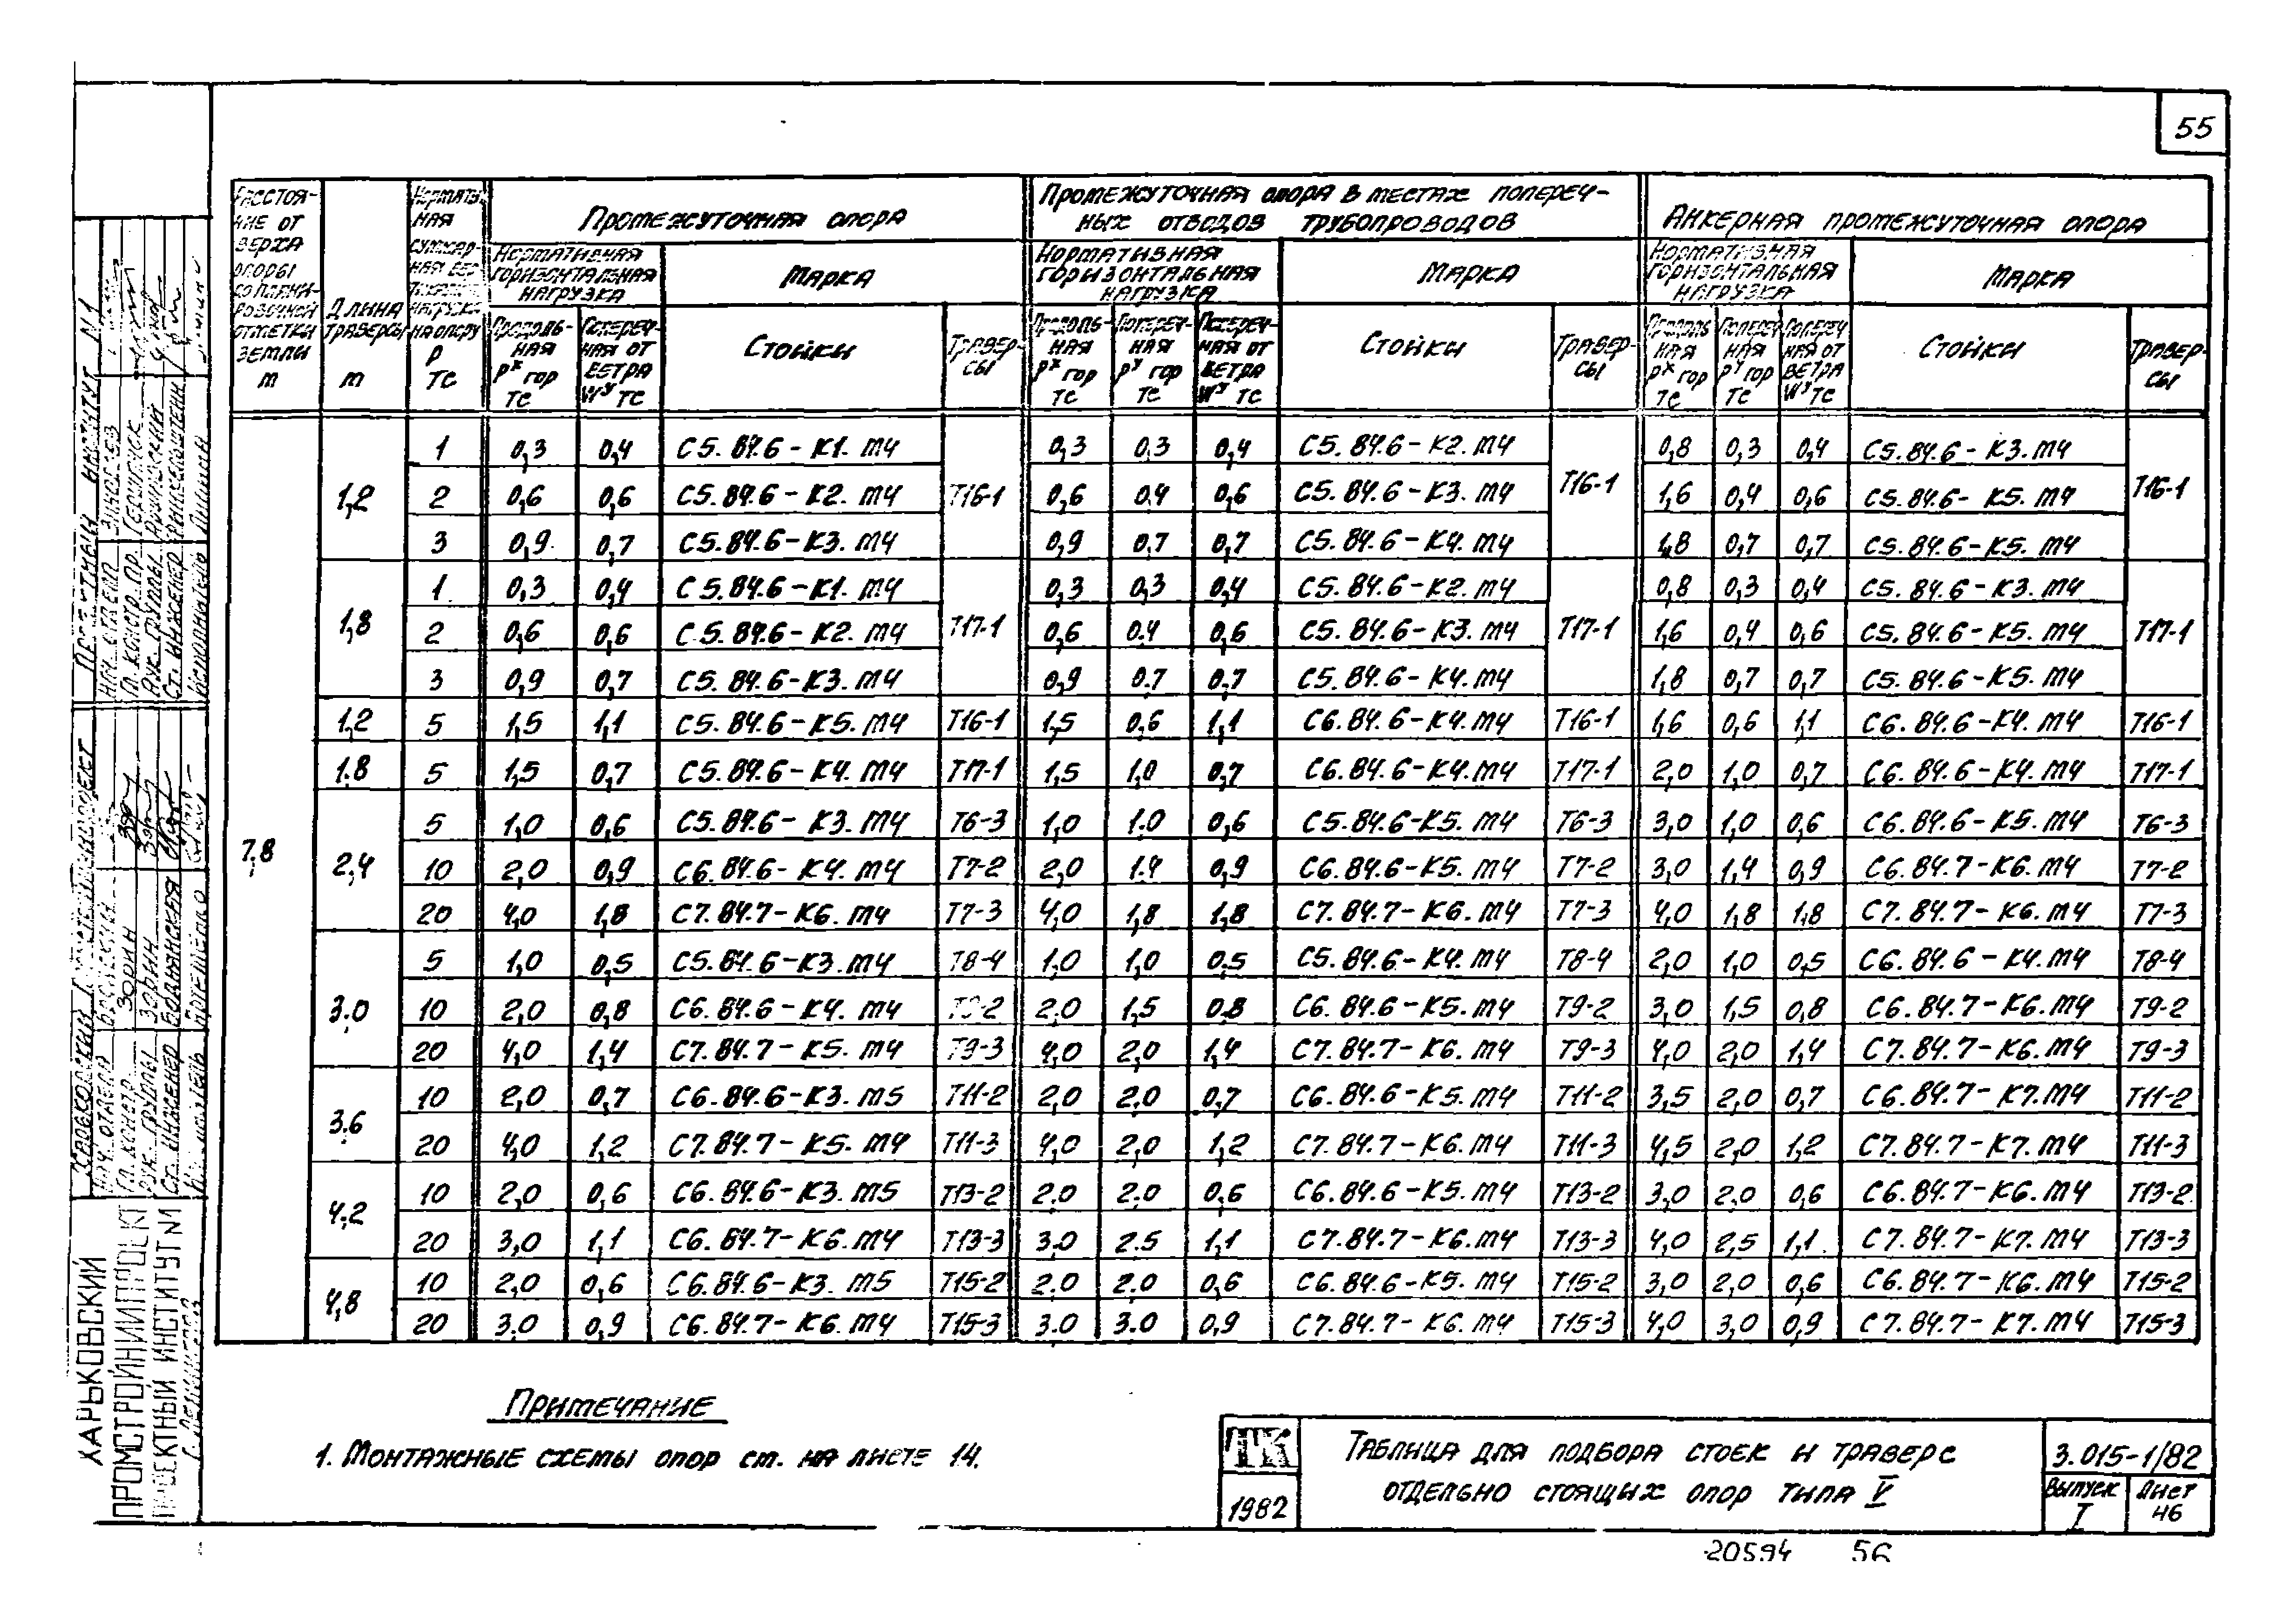 55
Расстоя-
ние от
верха
опоры
до плани-
ровочной
отметки
земли
м
Длина
траверсы
м
Норматив-
ная
суммар-
ная вер-
тикальная
нагрузка
на опору
Р
тс
Промежуточная опора
Нормативная
горизонтальная
нагрузка
Марка
Продоль-
ная
Pˣ гор
тс
Попереч-
ная от
ветра
Wʸ тс
Стойки
Травер-
сы
Промежуточная опора в местах попереч-
ных отводов трубопроводов
Нормативная
горизонтальная
нагрузка
Марка
Продоль-
ная
Pˣ гор
тс
Попереч-
ная
Pʸ гор
тс
Попереч-
ная от
ветра
Wʸ тс
Стойки
Травер-
сы
Анкерная промежуточная опора
Нормативная
горизонтальная
нагрузка
Марка
Продоль-
ная
Pˣ гор
тс
Попереч-
ная
Pʸ гор
тс
Попереч-
ная от
ветра
Wʸ тс
Стойки
Травер-
сы
7,8
1,2 Т16-1 Т16-1 Т16-1
1 0,3 0,4 С5.84.6-К1.М4 0,3 0.3 0,4 С5.84.6-К2.М4 0,8 0,3 0,4 С5.84.6-К3.М4
2 0,6 0,6 С5.84.6-К2.М4 0,6 0.4 0,6 С5.84.6-К3.М4 1,6 0,4 0,6 С5.84.6-К5.М4
3 0,9 0,7 С5.84.6-К3.М4 0,9 0.7 0,7 С5.84.6-К4.М4 1,8 0,7 0,7 С5.84.6-К5.М4
1,8 Т17-1 Т17-1 Т17-1
1 0,3 0,4 С5.84.6-К1.М4 0,3 0,3 0,4 С5.84.6-К2.М4 0,8 0,3 0,4 С5.84.6-К3.М4
2 0,6 0,6 С5.84.6-К2.М4 0,6 0.4 0,6 С5.84.6-К3.М4 1,6 0,4 0,6 С5.84.6-К5.М4
3 0,9 0,7 С5.84.6-К3.М4 0,9 0.7 0,7 С5.84.6-К4.М4 1,8 0,7 0,7 С5.84.6-К5.М4
1,2 5 1,5 1,1 С5.84.6-К5.М4 Т16-1 1,5 0,6 1,1 С6.84.6-К4.М4 Т16-1 1,6 0,6 1,1 С6.84.6-К4.М4 Т16-1
1.8 5 1,5 0,7 С5.84.6-К4.М4 Т17-1 1,5 1.0 0,7 С6.84.6-К4.М4 Т17-1 2,0 1,0 0,7 С6.84.6-К4.М4 Т17-1
2,4
5 1,0 0,6 С5.84.6-К3.М4 Т6-3 1,0 1.0 0,6 С5.84.6-К5.М4 Т6-3 3,0 1,0 0,6 С6.84.6-К5.М4 Т6-3
10 2,0 0,9 С6.84.6-К4.М4 Т7-2 2,0 1.4 0,9 С6.84.6-К5.М4 Т7-2 3,0 1,4 0,9 С6.84.7-К6.М4 Т7-2
20 4,0 1,8 С7.84.7-К6.М4 Т7-3 4,0 1,8 1,8 С7.84.7-К6.М4 Т7-3 4,0 1,8 1,8 С7.84.7-К6.М4 Т7-3
3,0
5 1,0 0,5 С5.84.6-К3.М4 Т8-4 1,0 1,0 0.5 С5.84.6-К4.М4 Т8-4 2,0 1,0 0,5 С6.84.6-К4.М4 Т8-4
10 2,0 0,8 С6.84.6-К4.М4 Т9-2 2,0 1,5 0.8 С6.84.6-К5.М4 Т9-2 3,0 1,5 0,8 С6.84.7-К6.М4 Т9-2
20 4,0 1,4 С7.84.7-К5.М4 Т9-3 4,0 2,0 1,4 С7.84.7-К6.М4 Т9-3 4,0 2,0 1,4 С7.84.7-К6.М4 Т9-3
3,6
10 2,0 0,7 С6.84.6-К3.М5 Т11-2 2,0 2,0 0,7 С6.84.6-К5.М4 Т11-2 3,5 2,0 0,7 С6.84.7-К7.М4 Т11-2
20 4,0 1,2 С7.84.7-К5.М4 Т11-3 4,0 2,0 1,2 С7.84.7-К6.М4 Т11-3 4,5 2,0 1,2 С7.84.7-К7.М4 Т11-3
4,2
10 2,0 0,6 С6.84.6-К3.М5 Т13-2 2.0 2.0 0,6 С6.84.6-К5.М4 Т13-2 3,0 2,0 0,6 С6.84.7-К6.М4 Т13-2
20 3,0 1,1 С6.84.7-К6.М4 Т13-3 3.0 2.5 1,1 С7.84.7-К6.М4 Т13-3 4,0 2,5 1,1 С7.84.7-К7.М4 Т13-3
4,8
10 2,0 0,6 С6.84.6-К3.М5 Т15-2 2.0 2.0 0,6 С6.84.6-К5.М4 Т15-2 3,0 2,0 0,6 С6.84.7-К6.М4 Т15-2
20 3.0 0,9 С6.84.7-К6.М4 Т15-3 3.0 3.0 0,9 С7.84.7-К6.М4 Т15-3 4,0 3,0 0,9 С7.84.7-К7.М4 Т15-3
Примечание
1. Монтажные схемы опор см. на листе 14.
ТК
1982
Таблица для подбора стоек и траверс
отдельно стоящих опор типа V
3.015-1/82
Выпуск
I
Лист
46
20594 56
Харьковский
Промстройниипроект
Проектный институт №1
Гл. констр.
Рук. группы
Ст. инженер
Зорин
Зорин
Гл. констр. пр.
Рук. группы
Ст. инженер
Исполнитель